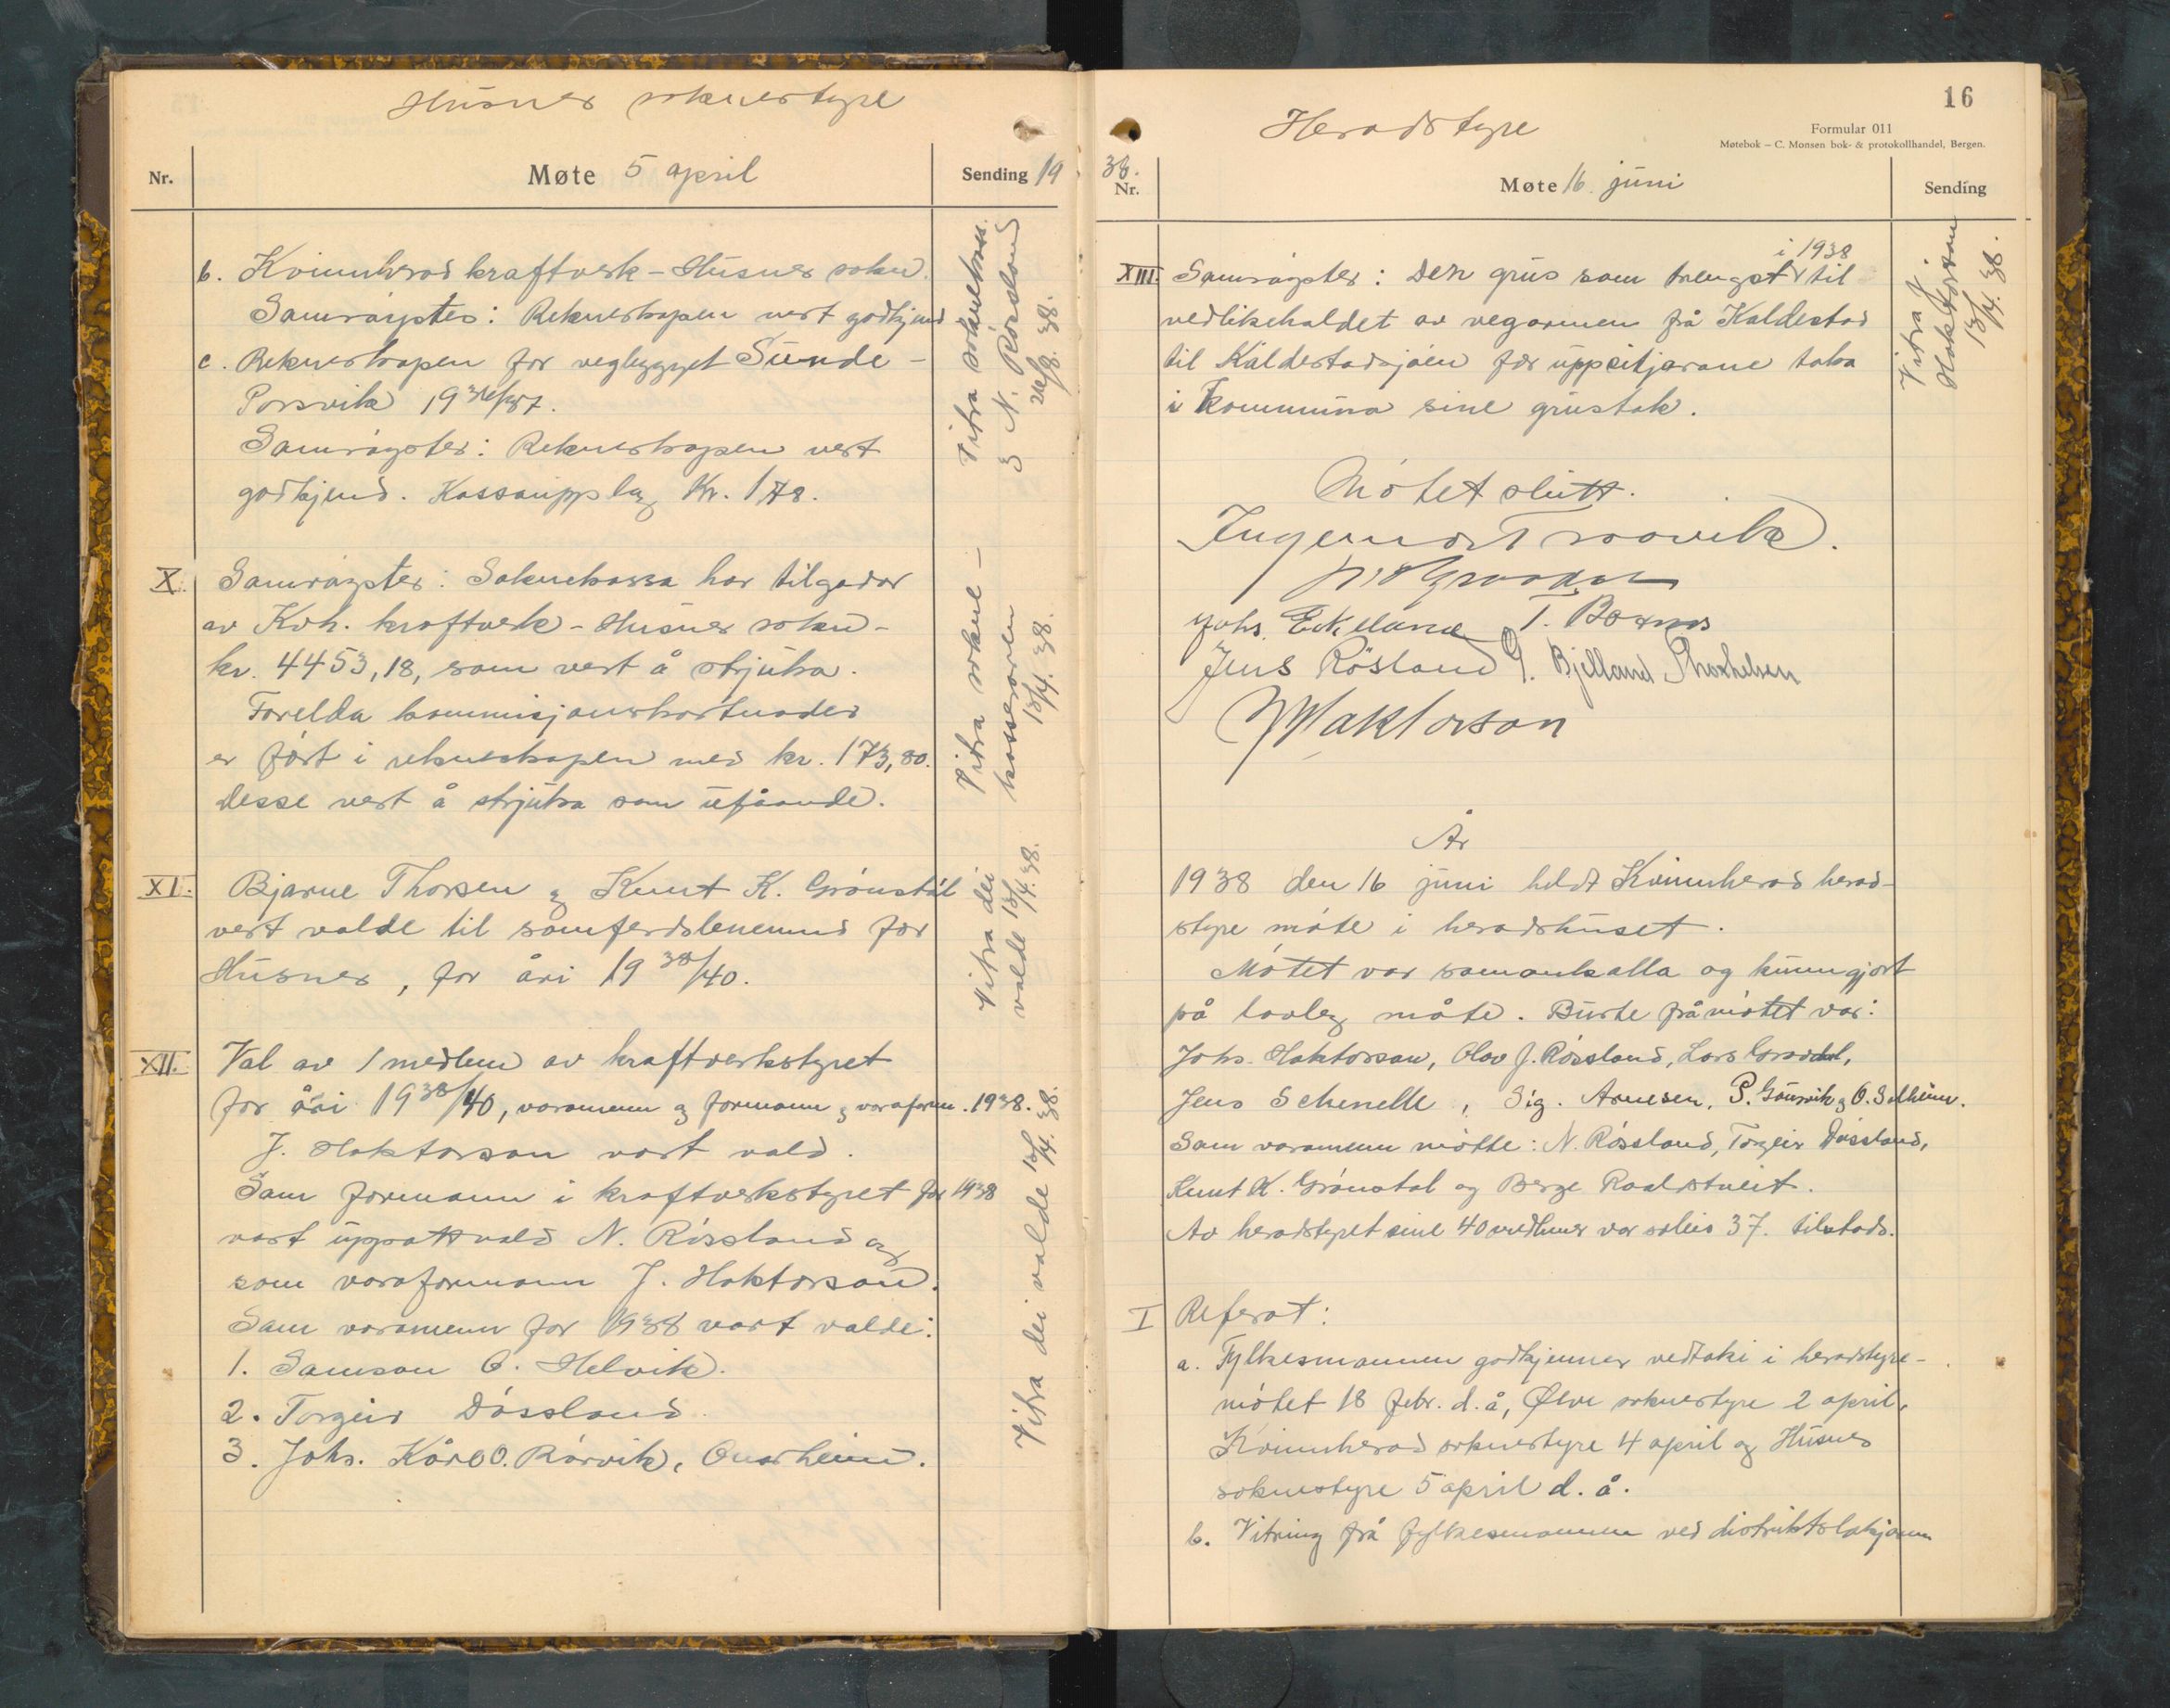 Husnes soknestyre
Nr.
Møte 5 april
Sending 19
b. Kvinnherad kraftverk - Husnes sokn.
Samrøystes: Rekneskapen vert godkjend
c. Rekneskapen for vegbygget Sunde -
Porsvik 1936/37.
Samrøystes: Rekneskapen vert
godkjend. Kassaupplag Kr. 178.
Vitra soknekass.
3 N. Røssland
26/8. 38.
X. Samrøystes: Soknekassa har tilgodar
av Kvh. kraftverk - Husnes sokn -
kr. 4453,18, som vert å strjuka.
Forelda kommisjonskostnader
er ført i rekneskapen med kr. 173,80.
Desse vert å strjuka som uføande.
Vitra sokne -
kasseraren
13/4. 38.
XI. Bjarne Thorsen og Knut K. Grønstøl
vert valde til samferdslenemnd for
Husnes, for åri 1938/40.
Vitra dei
valde 13/4. 38.
XII. Val av 1 medlem av kraftverkstyret
for åri 1938/40, varamenn og formann og varaform. 1938.
J. Haktorson vart vald.
Som formann i kraftverkstyret for 1938
vart uppattvald N. Røssland og
som varaformann J. Haktorson.
Som varamenn for 1938 vart valde:
1. Samson O. Helvik.
2. Torgeir Døssland.
3. Johs. Kåre O. Rørvik, Onarheim.
Vitra dei valde 13/4. 38.
16
Heradstyre
Formular 011
Møtebok – C. Monsen bok- & protokollhandel, Bergen.
38.
Nr.
Møte 16. juni
Sending
i 1938
XIII. Samrøystes: Den grus som trengst til
vedlikehaldet av vegarmen frå Kaldestad
til Kaldestadsjøen får uppsitjarane taka
i kommuna sine grustak.
Vitra J.
Haktorson
13/4. 38.
Møtet slutt.
Ingemar Traavik.
Johs. Eikeland
Jens Røsland G. Bjelland Thorkelsen
J Haktorson
År
1938 den 16 juni heldt Kvinnherad herad-
styre møte i heradshuset.
Møtet var samankalla og kunngjort
på lovleg måte. Burte frå møtet var:
Johs. Haktorson, Olav J. Røssland, Lars Gravdal,
Jens Schenelle, Sig. Arnesen, P. Gausvik og O. Solheim.
Som varamenn møtte: N. Røssland, Torgeir Døssland,
Knut K. Grønstøl og Berge Raaldstveit.
Av heradstyret sine 40 medlemer var soleis 37. tilstads.
I Referat:
a. Fylkesmannen godkjenner vedtaki i heradstyre-
møtet 18 febr. d. å, Ølve soknestyre 2 april,
Kvinnherad soknestyre 4 april og Husnes
soknestyre 5 april d. å.
b. Vitring frå fylkesmannen ved distriktslækjaren